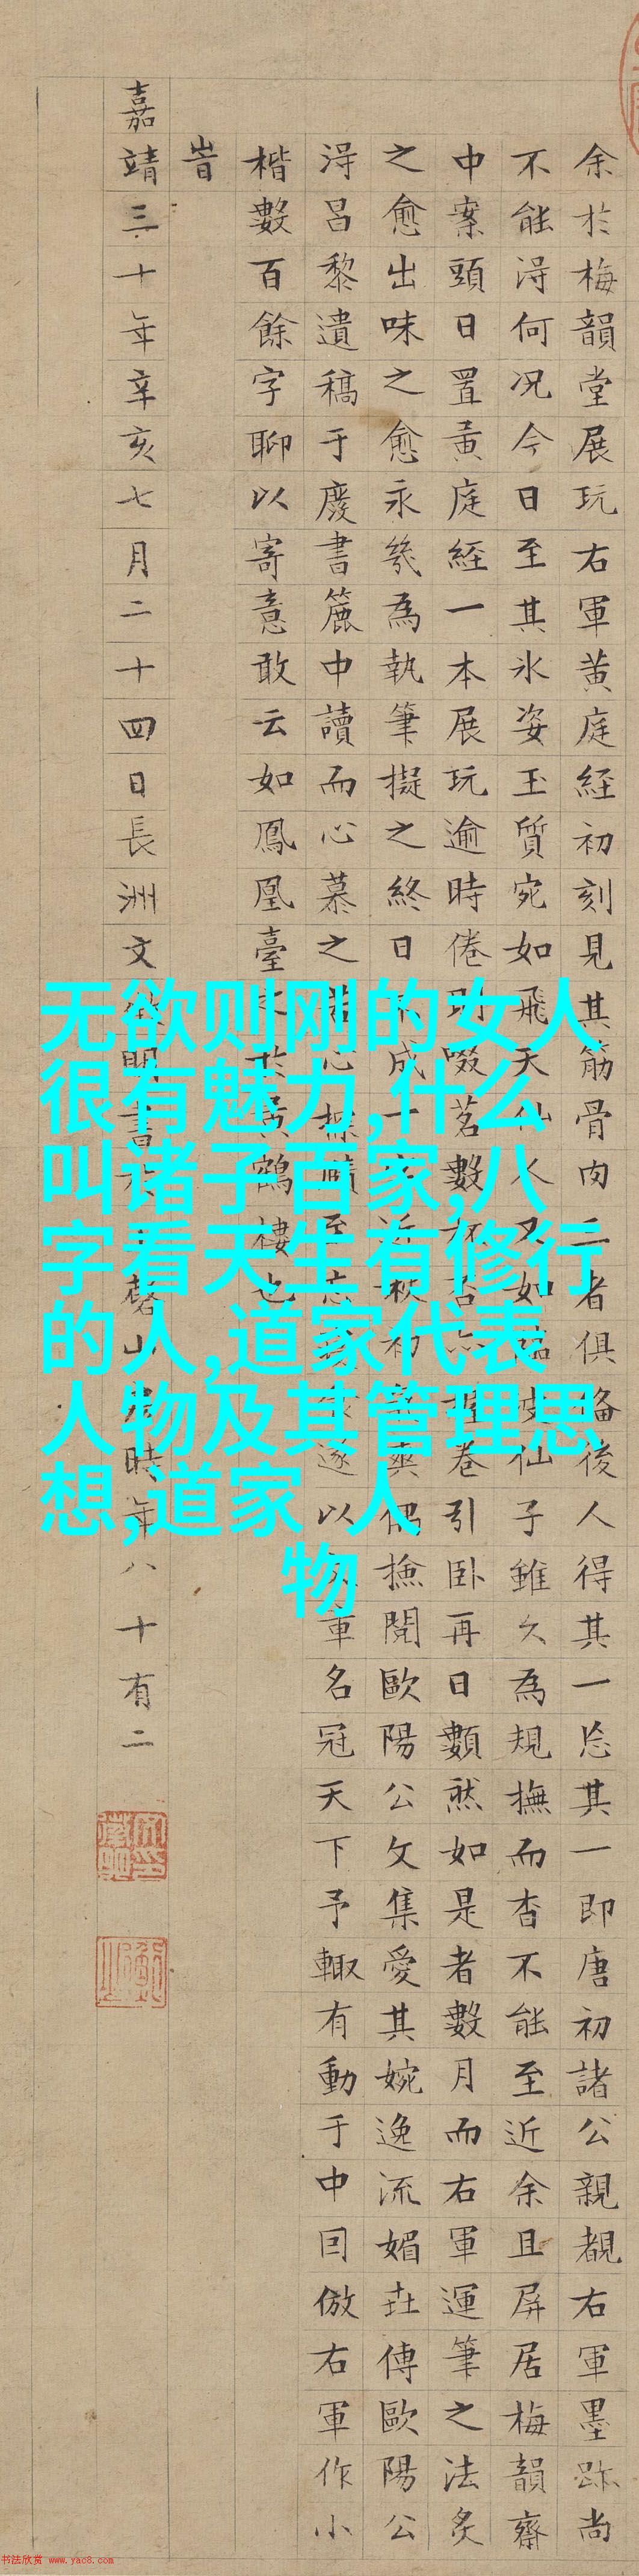 余於梅韻堂展玩右軍黄庭経初刻見其筋骨肉三者俱備後人得其一忘其一即唐初諸公親覩右軍墨跡尚
不能淂何况今日至其氷姿玉質宛如飛天仙人又如仙子雖久為規撫而杳不能至近余且屏居梅韻齋
中案頭日置黄庭経一本展玩逾時倦則啜茗數杯否卷引卧再日數然如是者數月而右軍運筆之法炙
之愈出味之愈永為執筆擬之終日不成一近秋初爽偶撿閱歐陽公文集愛其婉逸流媚傳歐陽公
淂昌黎遺稿于廢書簏中讀而心慕之苦心探賾至忘遂以章名冠天下予輙有動于中因倣右軍作小
楷數百餘字聊以寄意敢云如鳳凰臺之於黄鶴樓也
旹
嘉靖三十年辛亥七月二十四日長洲文徴明書於玉磬山房時年八十有二
无欲则刚的女人
很有魅力,什么
叫诸子百家,八
字看天生有修行
的人,道家代表
人物及其管理思
想,道家 人
物
书法欣赏 www.yac8.com